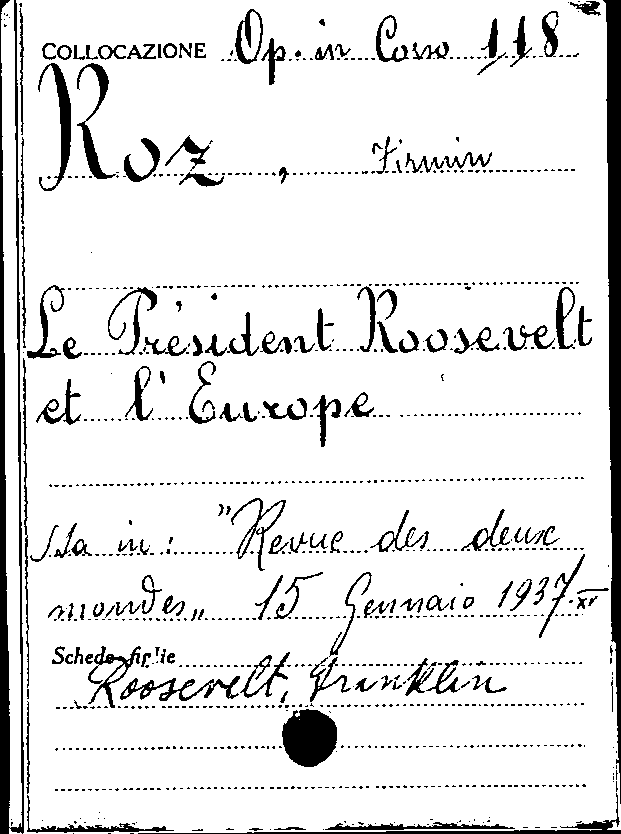 COLLOCAZIONE Op. in Corso 118
Roz, Firmin
Le Président Roosevelt
et l'Europe
Sta in: "Revue des deux
mondes„ 15 Gennaio 1937.XV
Schede figlie
Roosevelt, Franklin